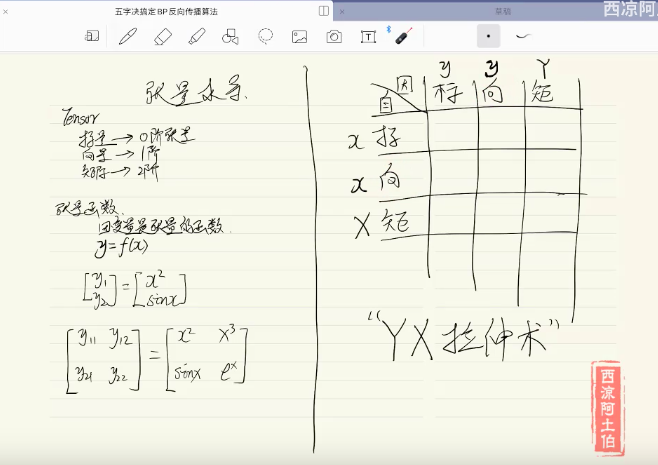 五字决搞定BP反向传播算法
草稿
西凉阿土
张量求导
Tensor
标量 → 0阶张量
向量 → 1阶
矩阵 → 2阶
张量函数
因变量是张量的函数
y = f(x)
[y₁ y₂] = [x² sinx]
[y₁₁ y₁₂ y₂₁ y₂₂] = [x² x³ sinx eˣ]
y y Y
自 因 标 向 矩
x 标
x 向
X 矩
“YX拉伸术”
西凉阿土伯